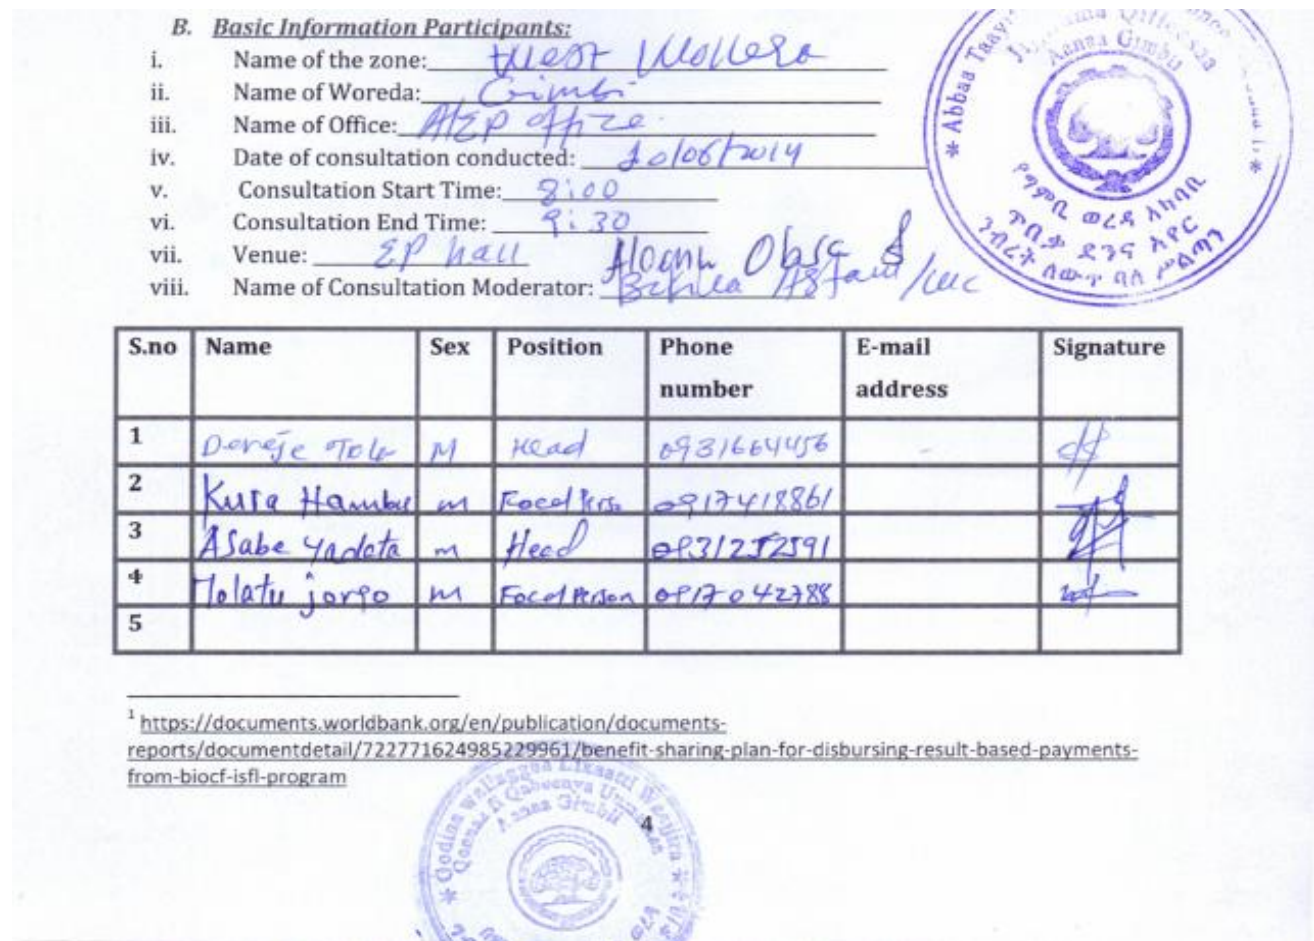 B. Basic Information Participants:
i. Name of the zone: West Wollega
ii. Name of Woreda: Gimbi
iii. Name of Office: AEP office
iv. Date of consultation conducted: 20/06/2014
v. Consultation Start Time: 8:00
vi. Consultation End Time: 9:30
vii. Venue: EP hall
viii. Name of Consultation Moderator:
Aanaa Gimbii
* Abbaa Taay
ወረዳ አካባቢ
ጥበቃ ደንና አየር
ንብረት ለውጥ ባለ ሥልጣን
S.no Name Sex Position Phone number E-mail address Signature
1 Dereje Tole M Head 0931664456
2 Kusa Hambu m Focal Perso 0917418861
3 Asabe Yadata m Head 0931252591
4 Tolatu jorgo m Focal Person 0917042788
5
1 https://documents.worldbank.org/en/publication/documents-
reports/documentdetail/722771624985229961/benefit-sharing-plan-for-disbursing-result-based-payments-
from-biocf-isfl-program
4
Aanaa Gimbii